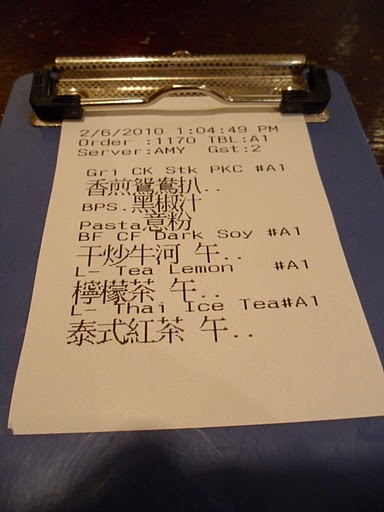 2/6/2010 1:04:49 PM
Order :1170 TBL:A1
Server:AMY Gst:2
Gri CK Stk PKC #A1
香煎鴛鴦扒..
BPS.黑椒汁
Pasta意粉
BF CF Dark Soy #A1
干炒牛河 午..
L- Tea Lemon #A1
檸檬茶 午..
L- Thai Ice Tea#A1
泰式紅茶 午..